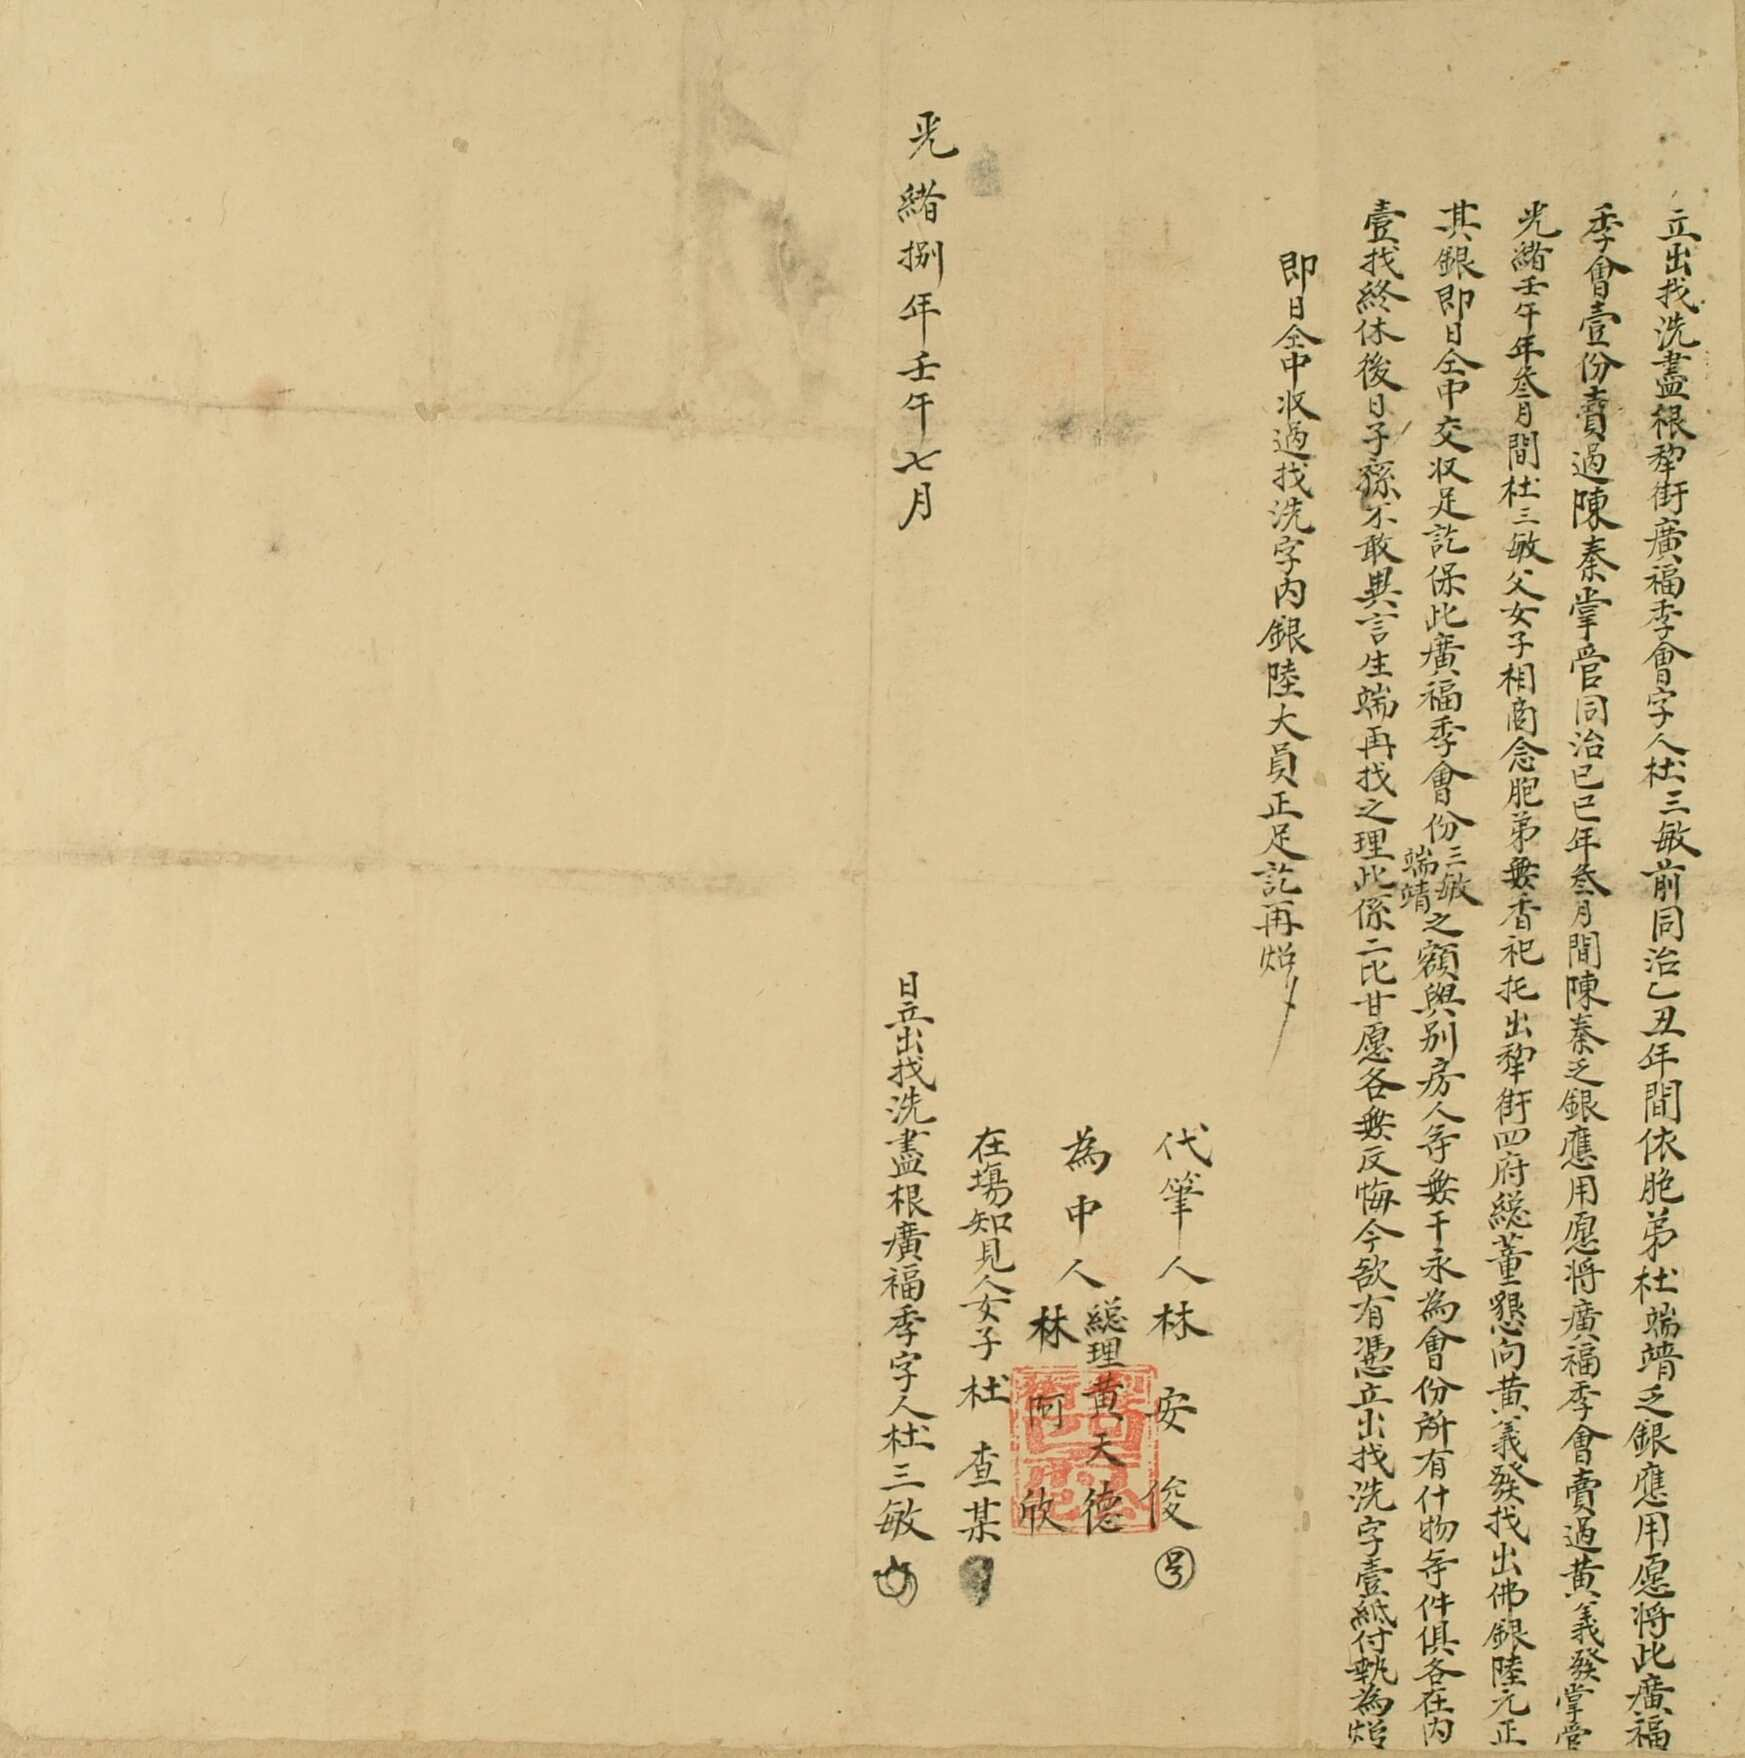 立出找洗盡根犂街廣福季會字人杜三敏前同治乙丑年間依胞弟杜端靖乏銀應用愿將此廣福
季會壹份賣過陳秦掌管同治己巳年叁月間陳秦乏銀應用愿將廣福季會賣過黄義發掌管
光緒壬午年叁月間杜三敏父女子相商念胞弟無香祀托出犂街四府総董懇向黄義發找出佛銀陸元正
其銀即日仝中交收足訖保此廣福季會份三敏端靖之額與别房人等無干永為會份所有什物等件俱各在内
壹找終休後日子孫不敢異言生端再找之理此係二比甘愿各無反悔今欲有憑立出找洗字壹紙付執為炤
即日仝中收過找洗字内銀陸大員正足訖再炤
代筆人林安俊号
為中人総理黄天德
林阿欣
在塲知見人女子杜查某
光緒捌年壬午七月
日立出找洗盡根廣福季字人杜三敏